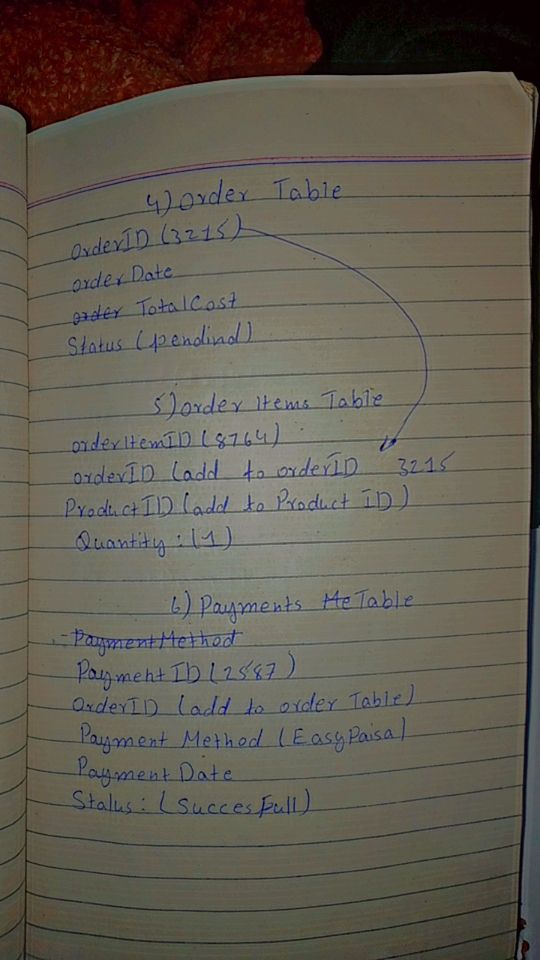 4) Order Table
OrderID (3215)
order Date
order TotalCost
Status (pendind)
5) order Items Table
orderItemID (8764)
orderID (add to orderID 3215
ProductID (add to Product ID)
Quantity : (1)
6) Payments Me Table
PaymentMethod
Payment ID (2587)
OrderID (add to order Table)
Payment Method (EasyPaisa)
Payment Date
Status : (SuccesFull)